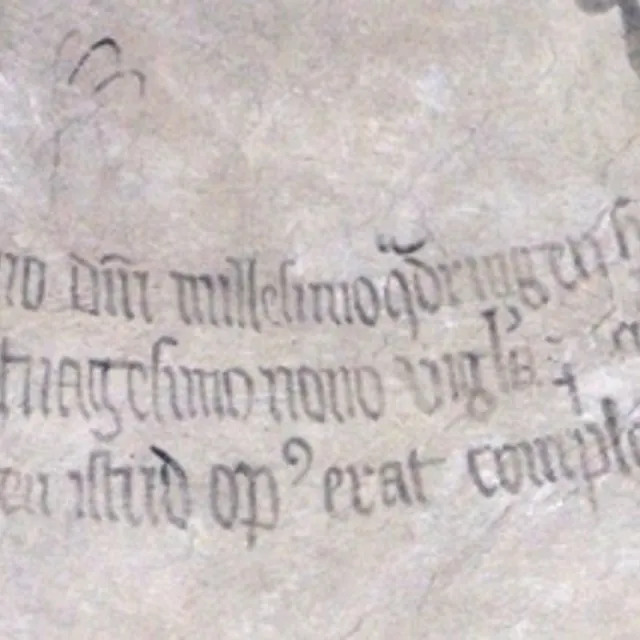 no dm̄ millesimo q̄dringen
nagesimo nono vigla
istud op⁹ erat comple